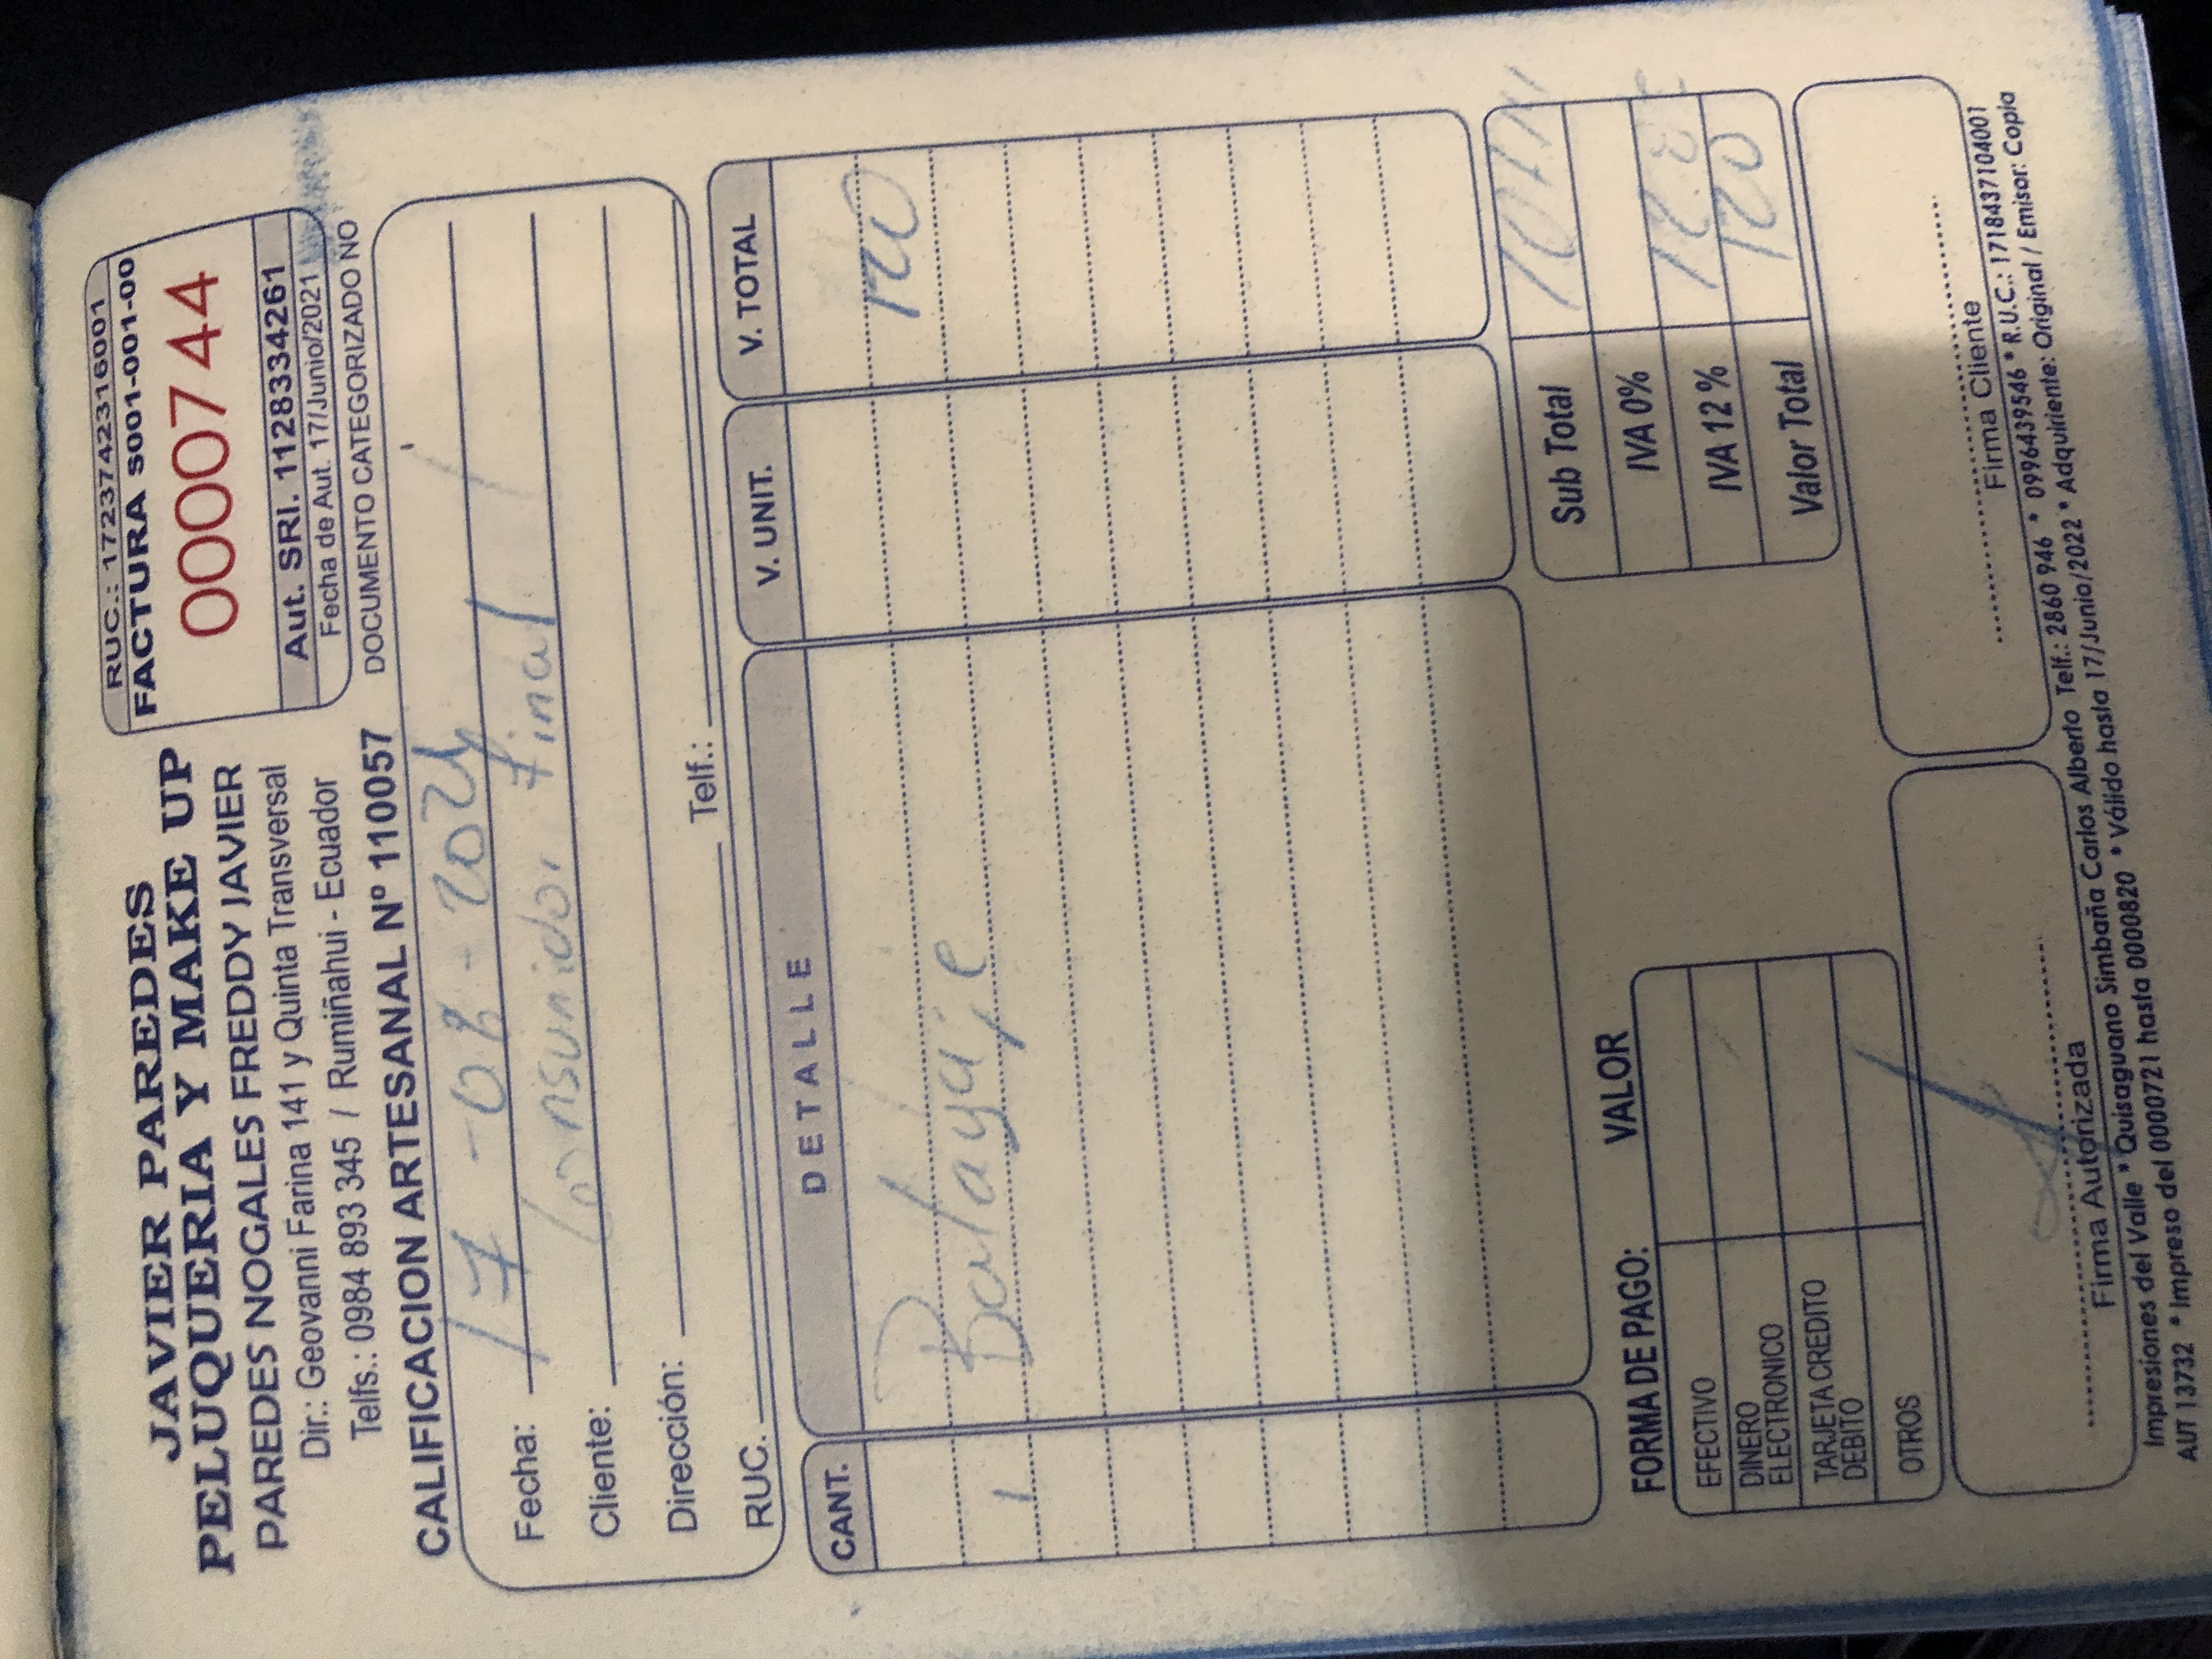 RUC.: 1723742316001
JAVIER PAREDES
PELUQUERIA Y MAKE UP
PAREDES NOGALES FREDDY JAVIER
Dir.: Geovanni Farina 141 y Quinta Transversal
Telfs.: 0984 893 345 / Rumiñahui - Ecuador
CALIFICACION ARTESANAL Nº 110057
FACTURA S001-001-00
0000744
Aut. SRI. 1128334261
Fecha de Aut. 17/Junio/2021
DOCUMENTO CATEGORIZADO NO
Fecha: 17-08-2021
Cliente: Consumidor Final
Dirección:
RUC. Telf.:
CANT. DETALLE V. UNIT. V. TOTAL
1 Balayaje 120
Sub Total
IVA 0%
IVA 12 %
Valor Total 120
FORMA DE PAGO: VALOR
EFECTIVO
DINERO
ELECTRONICO
TARJETA CREDITO
DEBITO
OTROS
Firma Autorizada
Firma Cliente
Impresiones del Valle * Quisaguano Simbaña Carlos Alberto Telf.: 2860 946 * 0996439546 * R.U.C.: 1718437104001
AUT 13732 * Impreso del 0000721 hasta 0000820 * Válido hasta 17/Junio/2022 * Adquiriente: Original / Emisor: Copia